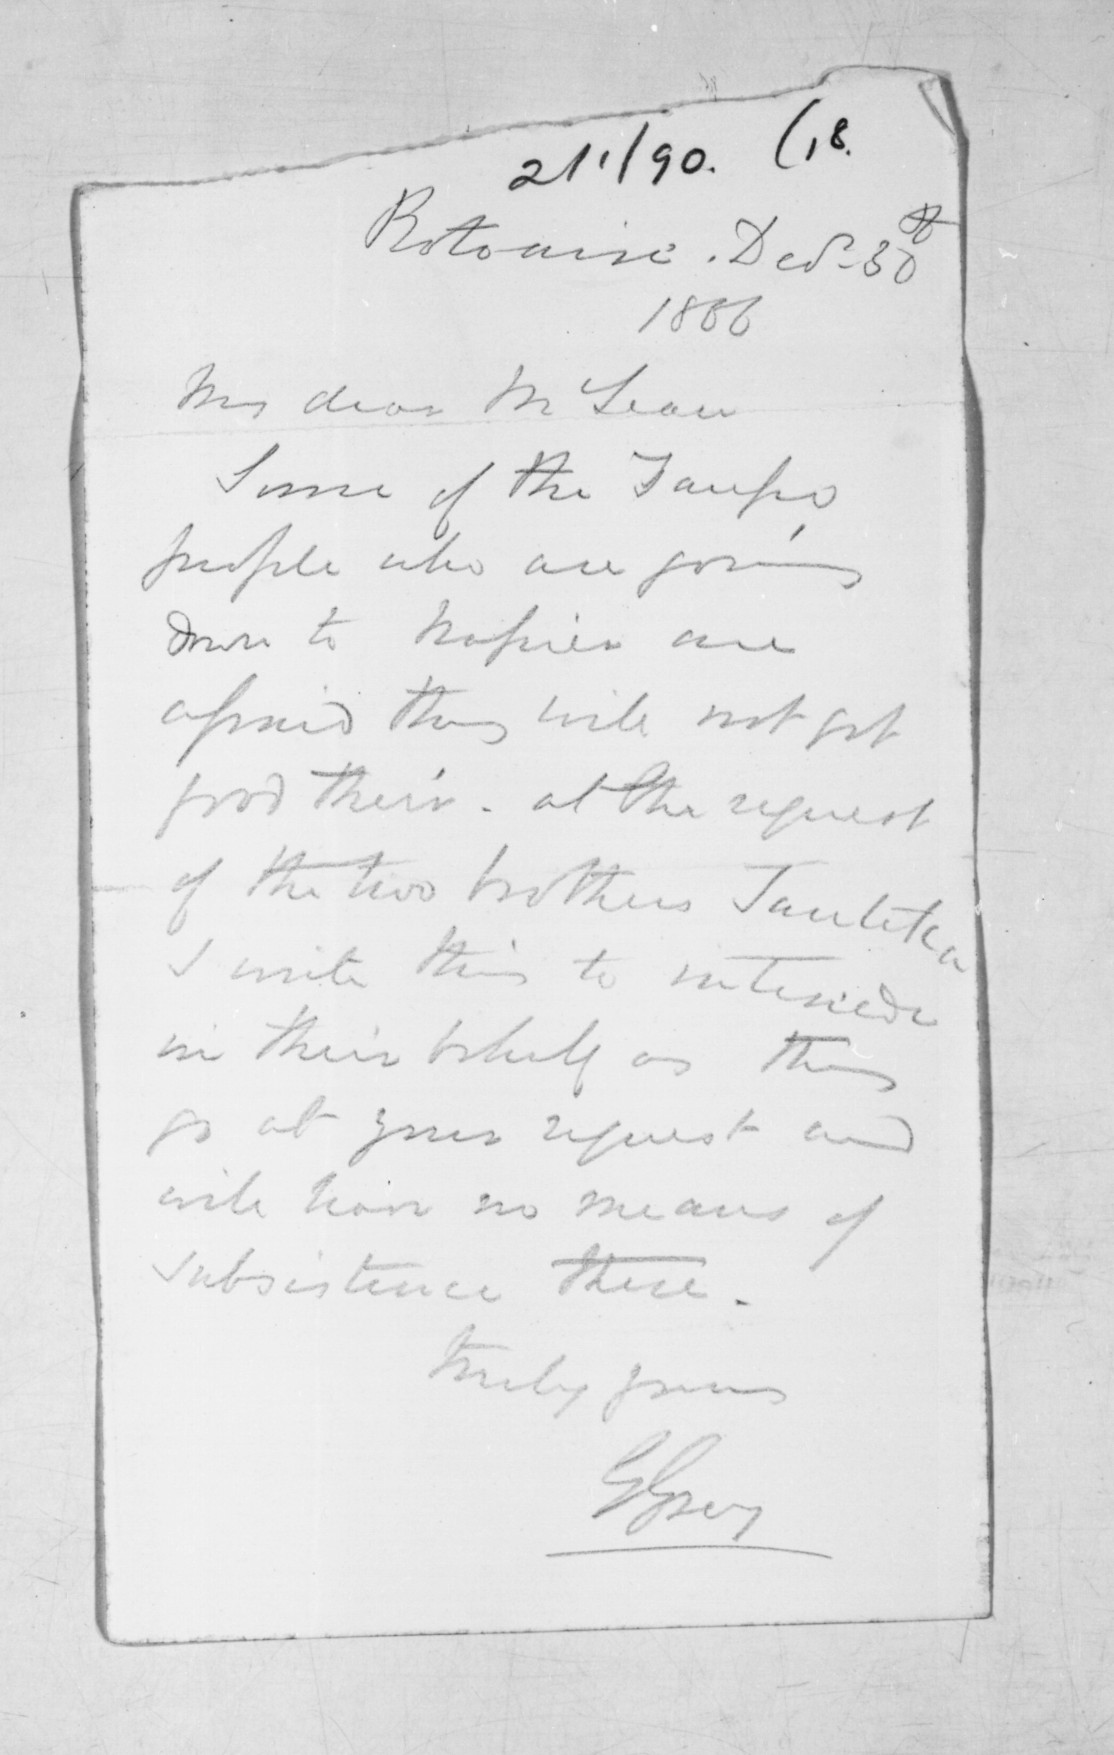 211/90. (18.
Rotoaira. Decr. 30th
1866
My dear McLean
Some of the Taupo
people who are going
down to Napier are
afraid they will not get
food there. at the request
of the two brothers
I write this to intercede
in their behalf as they
go at your request and
will have no means of
subsistence there.
truly yours
G Grey